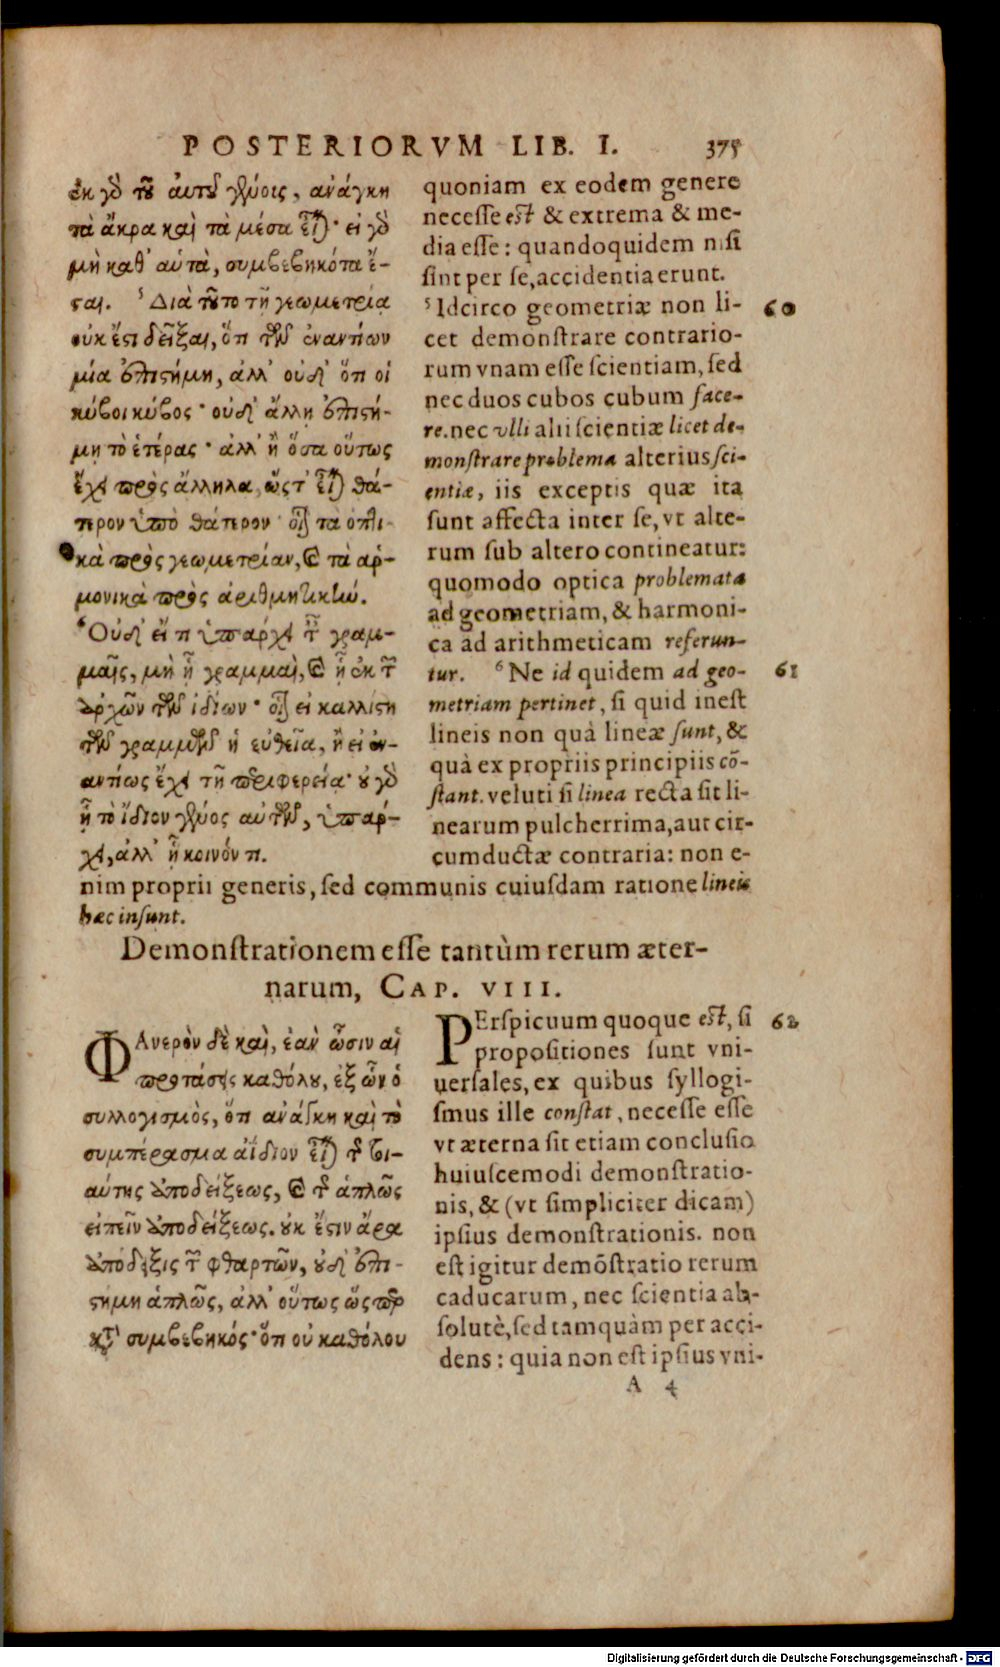 POSTERIORVM LIB. I. 375
ἐκ γὸ τοῦ αὐτοῦ γένοις, ἀνάγκη
τὰ ἄκρα καὶ τὰ μέσα εἶναι· εἰ γὸ
μὴ καθ' αὑτὰ, συμβεβηκότα ἔ-
σται. ⁵ Διὰ τοῦτο τῇ γεωμετρία
οὐκ ἔστι δεῖξαι, ὅτι τῶν ἐναντίων
μία ἐπιστήμη, ἀλλ' οὐδ' ὅτι οἱ
κύβοι κύβος· οὐδ' ἄλλη ἐπιστή-
μη τὸ ἑτέρας· ἀλλ' ἢ ὅσα οὕτως
ἔχει πρὸς ἄλληλα, ὥστ' εἶναι θά-
περον ὑπὸ θάτερον· οἷον τὰ ὀπτι-
κὰ πρὸς γεωμετρίαν, καὶ τὰ ἁρ-
μονικὰ πρὸς ἀριθμητικήν.
⁶ Οὐδ' εἴ τι ὑπάρχει ταῖς γραμ-
μαῖς, μὴ ᾗ γραμμαὶ, καὶ ᾗ ἐκ τῶν
ἀρχῶν τῶν ἰδίων· οἷον εἰ καλλίστη
τῶν γραμμῶν ἡ εὐθεῖα, ἢ εἰ ἐν-
αντίως ἔχει τῇ περιφερεία· οὐ γὸ
ᾗ τὸ ἴδιον γένος αὐτῶν, ὑπάρ-
χει, ἀλλ' ᾗ κοινόν τι.
quoniam ex eodem genere
necesse est & extrema & me-
dia esse: quandoquidem nisi
sint per se, accidentia erunt.
⁵ Idcirco geometriæ non li- 60
cet demonstrare contrario-
rum vnam esse scientiam, sed
nec duos cubos cubum face-
re. nec vlli alii scientiæ licet de-
monstrare problema alterius sci-
entiæ, iis exceptis quæ ita
sunt affecta inter se, vt alte-
rum sub altero contineatur:
quomodo optica problemata
ad geometriam, & harmoni-
ca ad arithmeticam referun-
tur. ⁶ Ne id quidem ad geo- 61
metriam pertinet, si quid inest
lineis non quà lineæ sunt, &
quà ex propriis principiis cõ-
stant. veluti si linea recta sit li-
nearum pulcherrima, aut cir-
cumductæ contraria: non e-
nim proprii generis, sed communis cuiusdam ratione lineis
hæc insunt.
Demonstrationem esse tantùm rerum æter-
narum, CAP. VIII.
ΦΑνερὸν δὲ καὶ, ἐὰν ὦσιν αἱ
προτάσεις καθόλου, ἐξ ὧν ὁ
συλλογισμὸς, ὅτι ἀνάγκη καὶ τὸ
συμπέρασμα ἀΐδιον εἶναι τῆς τοι-
αύτης ἀποδείξεως, καὶ τῆς ἁπλῶς
εἰπεῖν ἀποδείξεως. οὐκ ἔστιν ἄρα
ἀπόδειξις τῶν φθαρτῶν, οὐδ' ἐπι-
στήμη ἁπλῶς, ἀλλ' οὕτως ὥσπερ
κατὰ συμβεβηκός· ὅτι οὐ καθόλου
PErspicuum quoque est, si 62
propositiones sunt vni-
uersales, ex quibus syllogi-
smus ille constat, necesse esse
vt æterna sit etiam conclusio
huiuscemodi demonstratio-
nis, & (vt simpliciter dicam)
ipsius demonstrationis. non
est igitur demõstratio rerum
caducarum, nec scientia ab-
solutè, sed tamquàm per acci-
dens: quia non est ipsius vni-
A 4
Digitalisierung gefördert durch die Deutsche Forschungsgemeinschaft - DFG